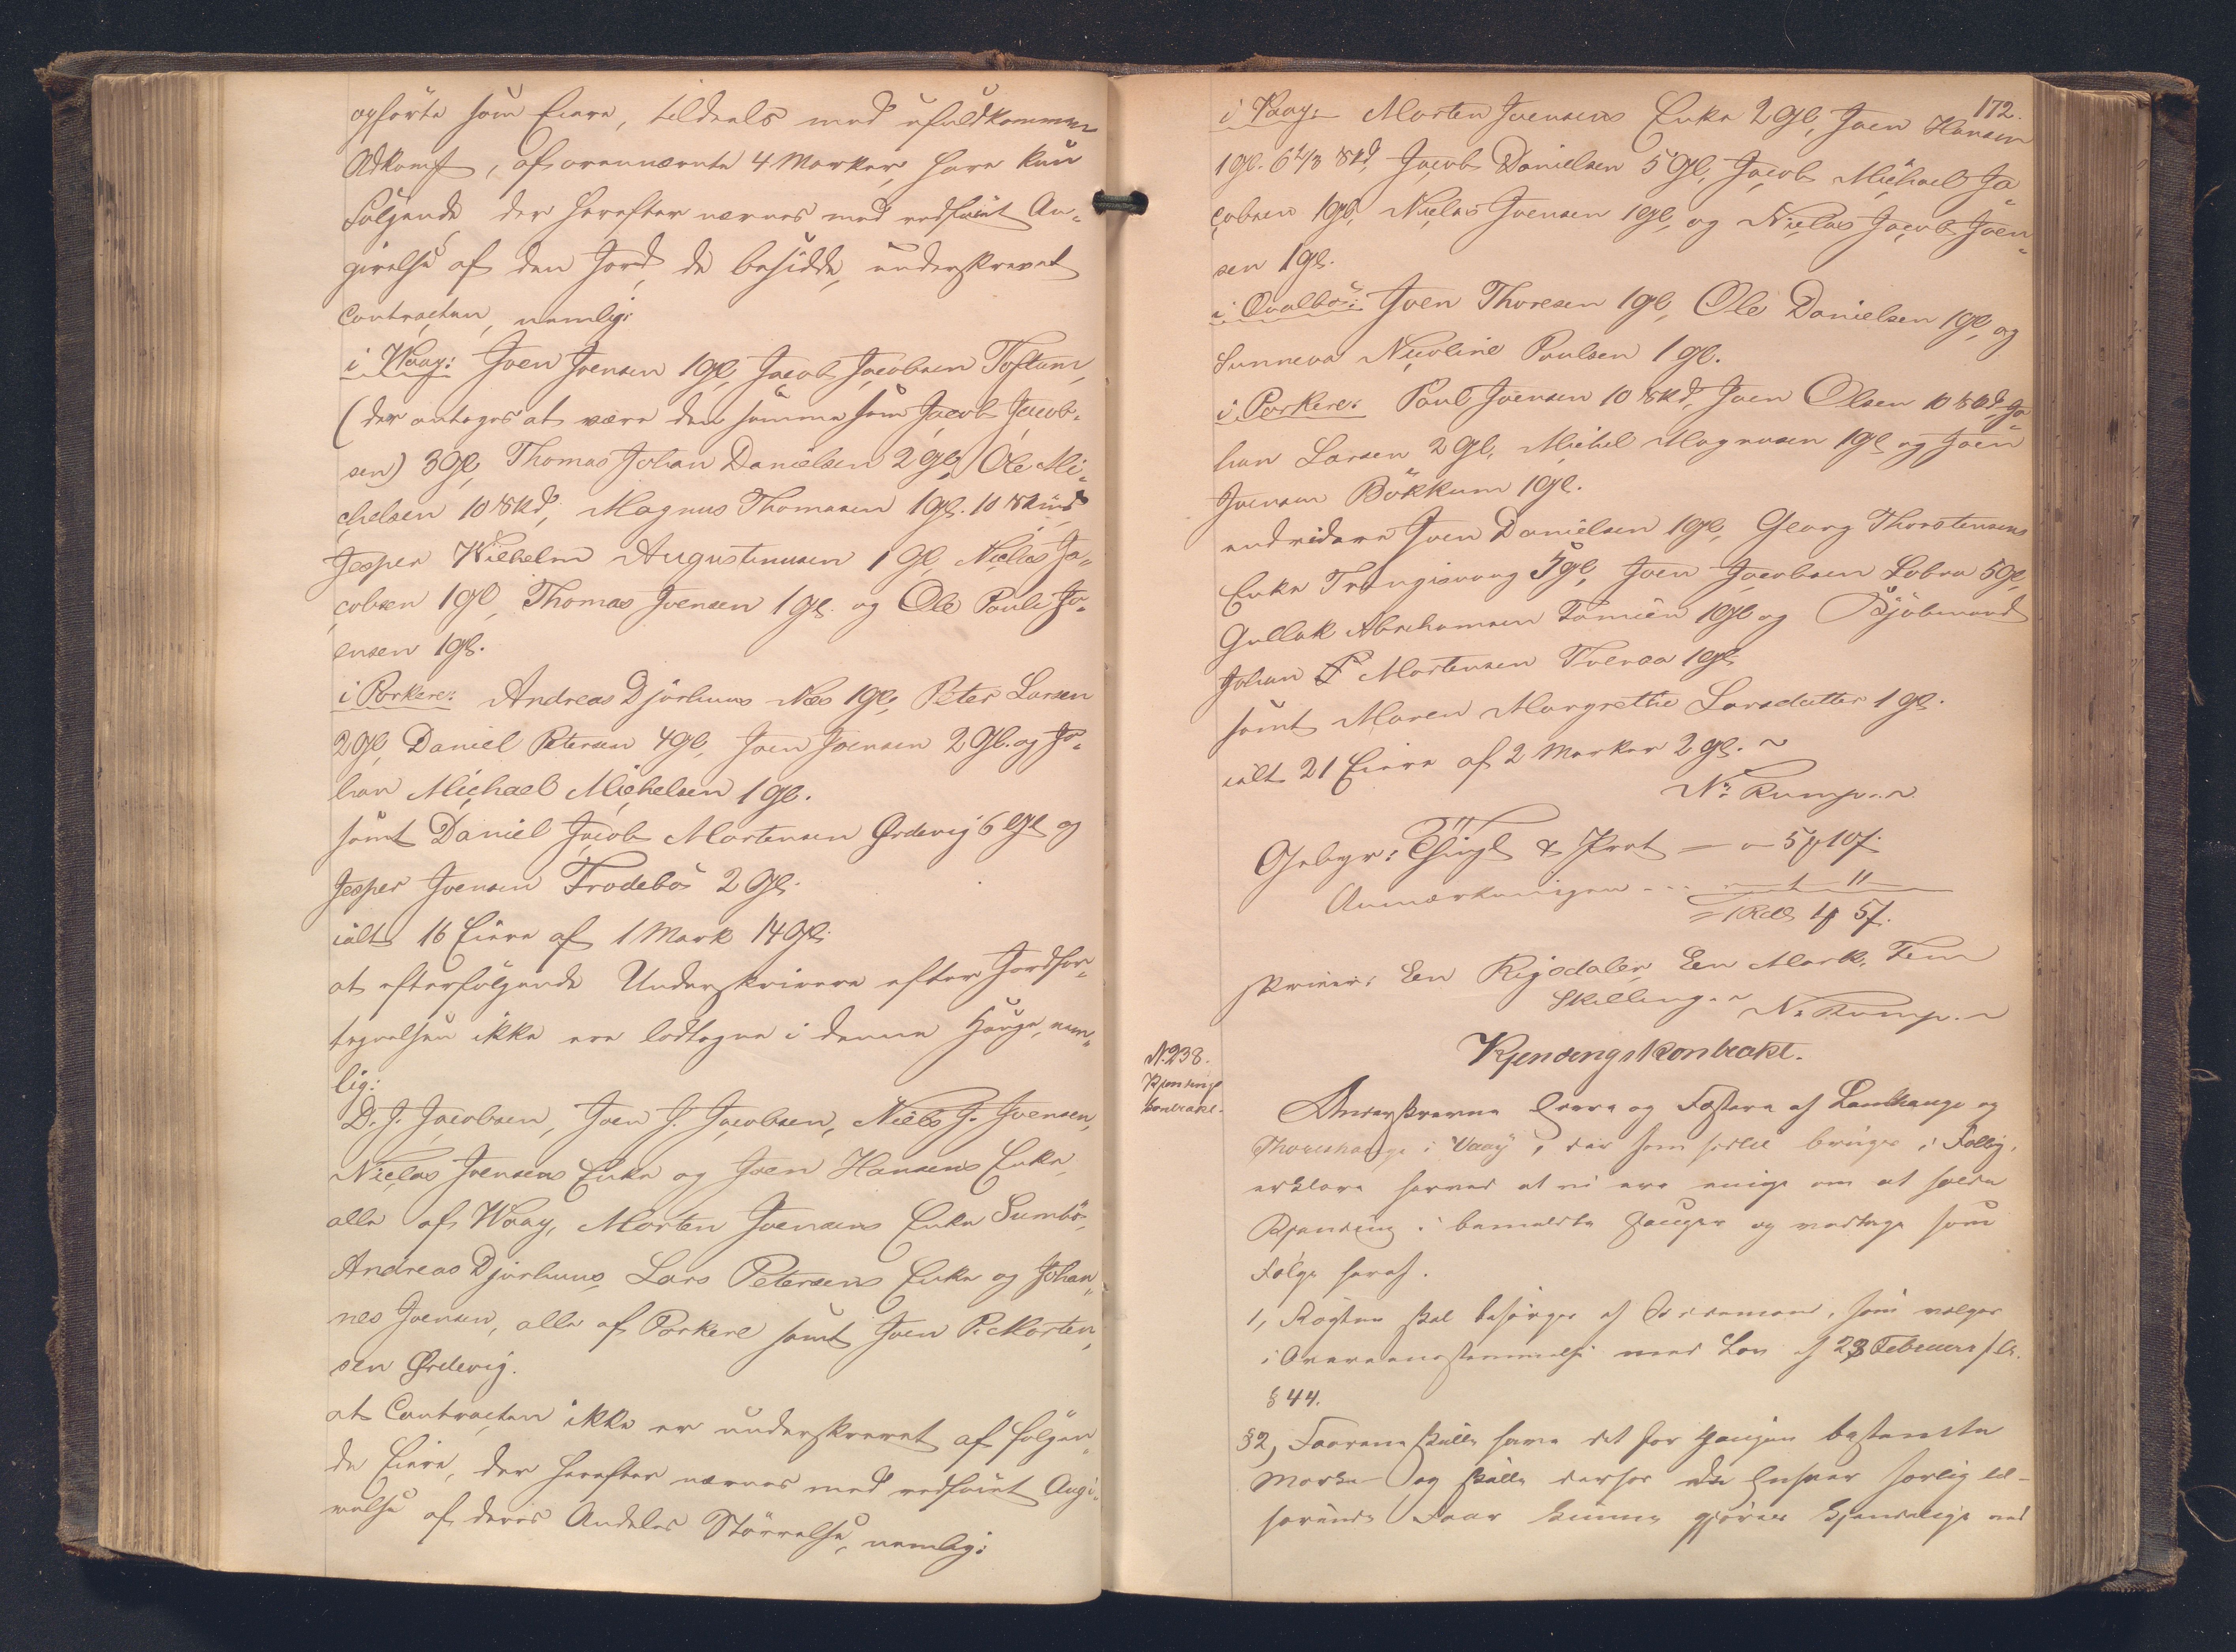 opførte som Eiere, tildeels med ufuldkommen
Adkomst, af ovennævnte 4 Marker, have kun
Følgende, der herefter nævnes med vedføiet An-
givelse af den Jord, de besidde, underskrevet
Contracten, nemlig:
i Waag: Joen Joensen 1 Gl, Jacob Jacobsen Toftum,
(der antages at være den samme som Jacob Jacob-
sen) 3 Gl, Thomas Johan Danielsen 2 Gl, Ole Mi-
chelsen 10 Skd, Magnus Thomasen 1 Gl. 10 Skind
Jesper Wilhelm Augustinusen 1 Gl, Niclas Ja-
cobsen 1 Gl, Thomas Joensen 1 Gl. og Ole Pauli Jo-
ensen 1 Gl.
i Porkere: Andreas Djurhuus Næs 1 Gl, Peter Larsen
2 Gl, Daniel Petersen 4 Gl, Joen Joensen 2 Gl. og Jo-
han Michael Michelsen 1 Gl.
samt Daniel Jacob Mortensen Ørdevig 6 Gl og
Jesper Joensen Frodebö 2 Gl.
ialt 16 Eiere af 1 Mark 14 Gl.
at efterfølgende Underskrivere efter Jordfor-
tegnelsen ikke ere lodtagne i denne Hauge, nem-
lig:
D. J. Jacobsen, Joen J. Jacobsen, Niels J. Joensen,
Niclas Joensens Enke og Joen Hansens Enke,
alle af Waag, Morten Joensens Enke Sumbö,
Andreas Djurhuus, Lars Petersens Enke og Johan-
nes Joensen, alle af Porkere samt Joen P. Morten-
sen Ørdevig.
at Contracten ikke er underskrevet af følgen-
de Eiere, der herefter nævnes med vedføiet Angi-
velse af deres Andeles Størrelse, nemlig:
172.
i Waag: Morten Joensens Enke 2 Gl, Joen Hansen
1 Gl. 6 2/3 Skd, Jacob Danielsen 5 Gl, Jacob Michael Ja-
cobsen 1 Gl, Niclas Joensen 1 Gl, og Niclas Jacob Joen-
sen 1 Gl.
i Qvalbö: Joen Thoresen 1 Gl, Ole Danielsen 1 Gl, og
Sunneva Nicoline Poulsen 1 Gl.
i Porkere: Poul Joensen 10 Skd, Joen Olsen 10 Skd, Jo-
han Larsen 2 Gl, Michel Magnusen 1 Gl og Joen
Joensen Bökkum 1 Gl.
endvidere Joen Danielsen 1 Gl, Georg Thorstensens
Enke Trangisvaag 5 Gl, Joen Jacobsen Lobra 5 Gl,
Gullak Abrahamsen Famien 1 Gl og Kjöbmand
Johan P Mortensen Tveraa 1 Gl
samt Maren Margrethe Larsdatter 1 Gl.
ialt 21 Eiere af 2 Marker 2 Gl.
N. Rump.
Gebyr: Thingl & Prot 5 10
Anmærkningen
1 Rdl 1 5
skriver: Een Rigsdaler, Een Mark, Fem
Skilling. N. Rump.
N. 238.
Kjendings
kontrakt.
Kjendingskontrakt.
Underskrevne Eiere og Fæstere af Lankhauge og
Thoreshauge i Vaag, der som fælles bruges i Fællig,
erklære herved at vi ere enige om at holde
Kjending i bemeldte Hauger og vedtage som
Følge heraf.
1, Røgten skal besørges af som vælges
i Overeensstemmelse med Lov af 23 Februar f. A.
§ 44.
§ 2, Faarene skulle have det for Haugen bestemte
Mærke og skulle derfor de Enhver særlig til-
hørende Faar kunne gjøres kjendelige ved